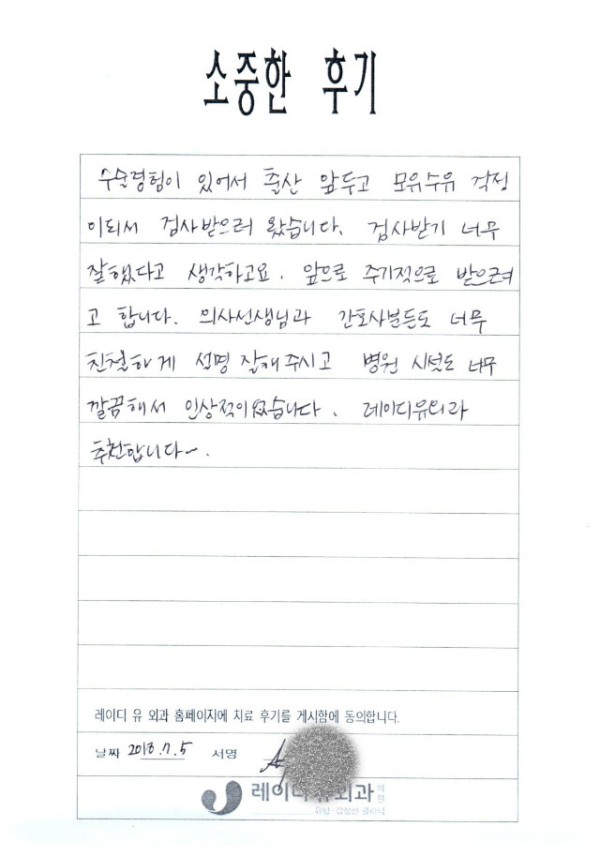 소중한 후기
수술경험이 있어서 출산 앞두고 모유수유 걱정
이되서 검사받으러 왔습니다. 검사받기 너무
잘했다고 생각하고요. 앞으로 주기적으로 받으려
고 합니다. 의사선생님과 간호사분들도 너무
친절하게 설명 잘해주시고 병원 시설도 너무
깔끔해서 인상적이었습니다. 레이디유외과
추천합니다~.
레이디 유 외과 홈페이지에 치료 후기를 게시함에 동의합니다.
날짜 2018.7.5 서명
레이디유외과